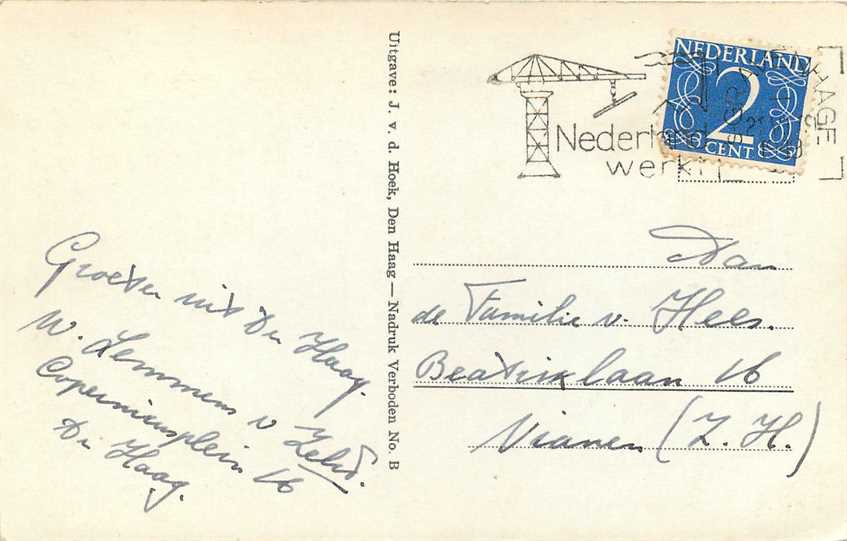 Groeten uit Den Haag.
W. Lemmens v
Copernicusplein 16
Den Haag.
Uitgave: J. v. d. Hoek, Den Haag — Nadruk Verboden No. B
NEDERLAND
2
CENT
HAGE
Nederland
werkt
Aan
de Familie v. Hees.
Beatrixlaan 16
Vianen (Z. H.)